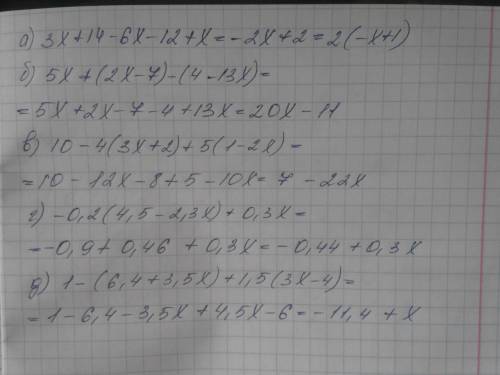 а) 3x+14-6x-12+x=-2x+2=2(-x+1)
б) 5x+(2x-7)-(4-13x)=
=5x+2x-7-4+13x=20x-11
в) 10-4(3x+2)+5(1-2x)=
=10-12x-8+5-10x=7-22x
г) -0,2(4,5-2,3x)+0,3x=
=-0,9+0,46+0,3x=-0,44+0,3x
д) 1-(6,4+3,5x)+1,5(3x-4)=
=1-6,4-3,5x+4,5x-6=-11,4+x